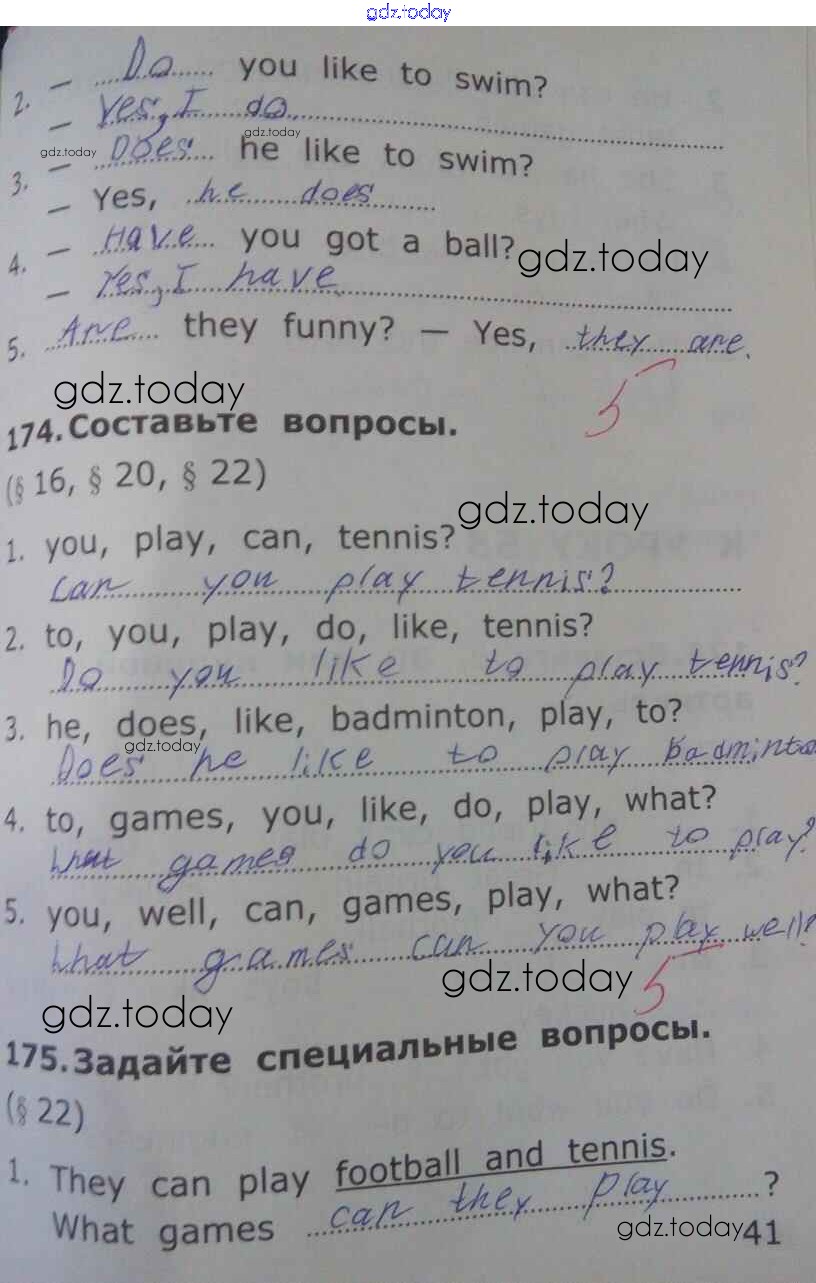 gdz.today
2. – Do you like to swim?
– Yes, I do
gdz.today
gdz.today
3. – Does he like to swim?
– Yes, he does
4. – Have you got a ball?
gdz.today
– Yes, I have
5. Are they funny? – Yes, they are.
gdz.today
5
174. Составьте вопросы.
(§ 16, § 20, § 22)
gdz.today
1. you, play, can, tennis?
can you play tennis?
2. to, you, play, do, like, tennis?
Do you like to play tennis?
3. he, does, like, badminton, play, to?
gdz.today
Does he like to play badminto
4. to, games, you, like, do, play, what?
What games do you like to play?
5. you, well, can, games, play, what?
What games can you play well?
gdz.today
5
gdz.today
175. Задайте специальные вопросы.
(§ 22)
1. They can play football and tennis.
What games can they play ?
gdz.today
41